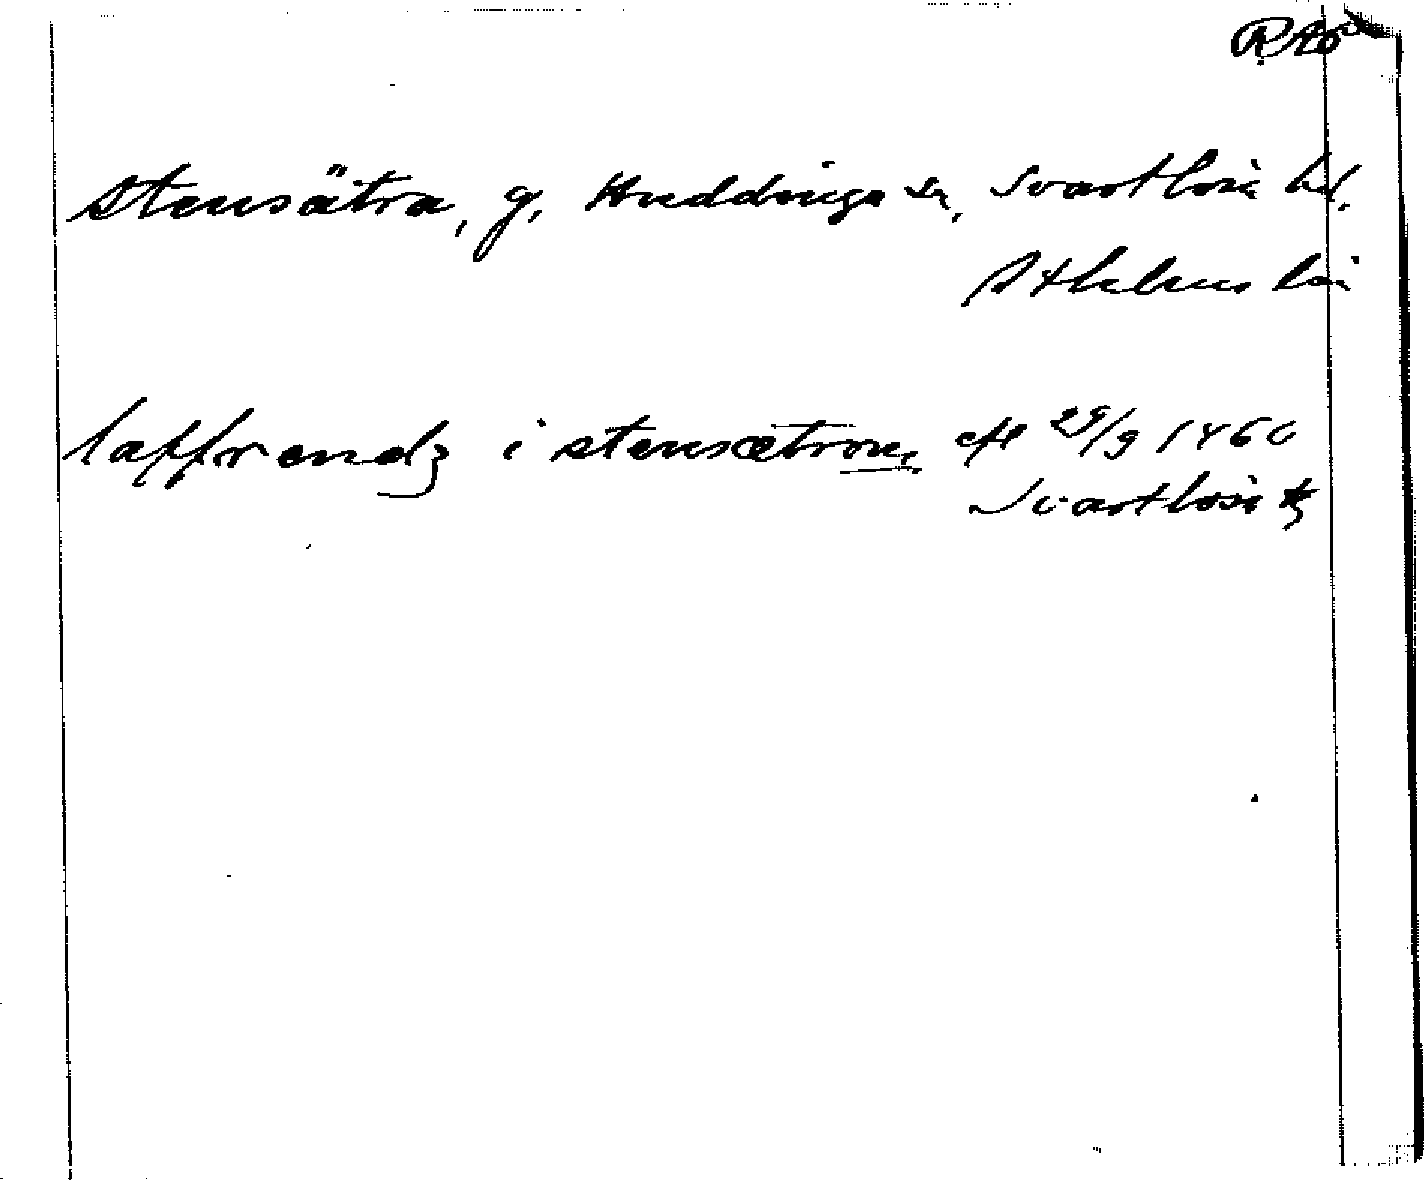 Stensätra, g, Huddinge sn, Svartlösa hd.
Sthlms län
laffrendz i stensætrom eft 29/9 1460
Svartlösa